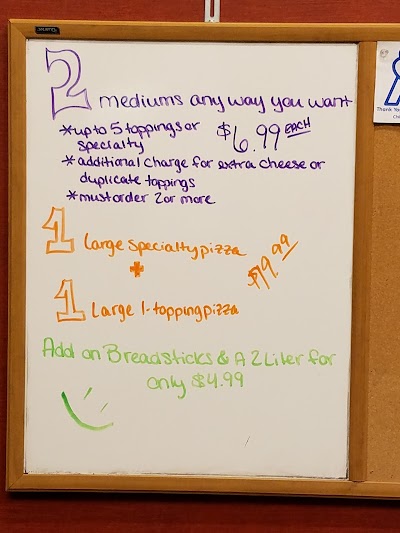 2 mediums any way you want
*up to 5 toppings or $6.99 EACH
specialty
*additional charge for extra cheese or
duplicate toppings
*must order 2 or more
1 Large specialty pizza
+ $19.99
1 Large 1-topping pizza
Add on Breadsticks & A 2 Liter for
only $4.99
Thank You